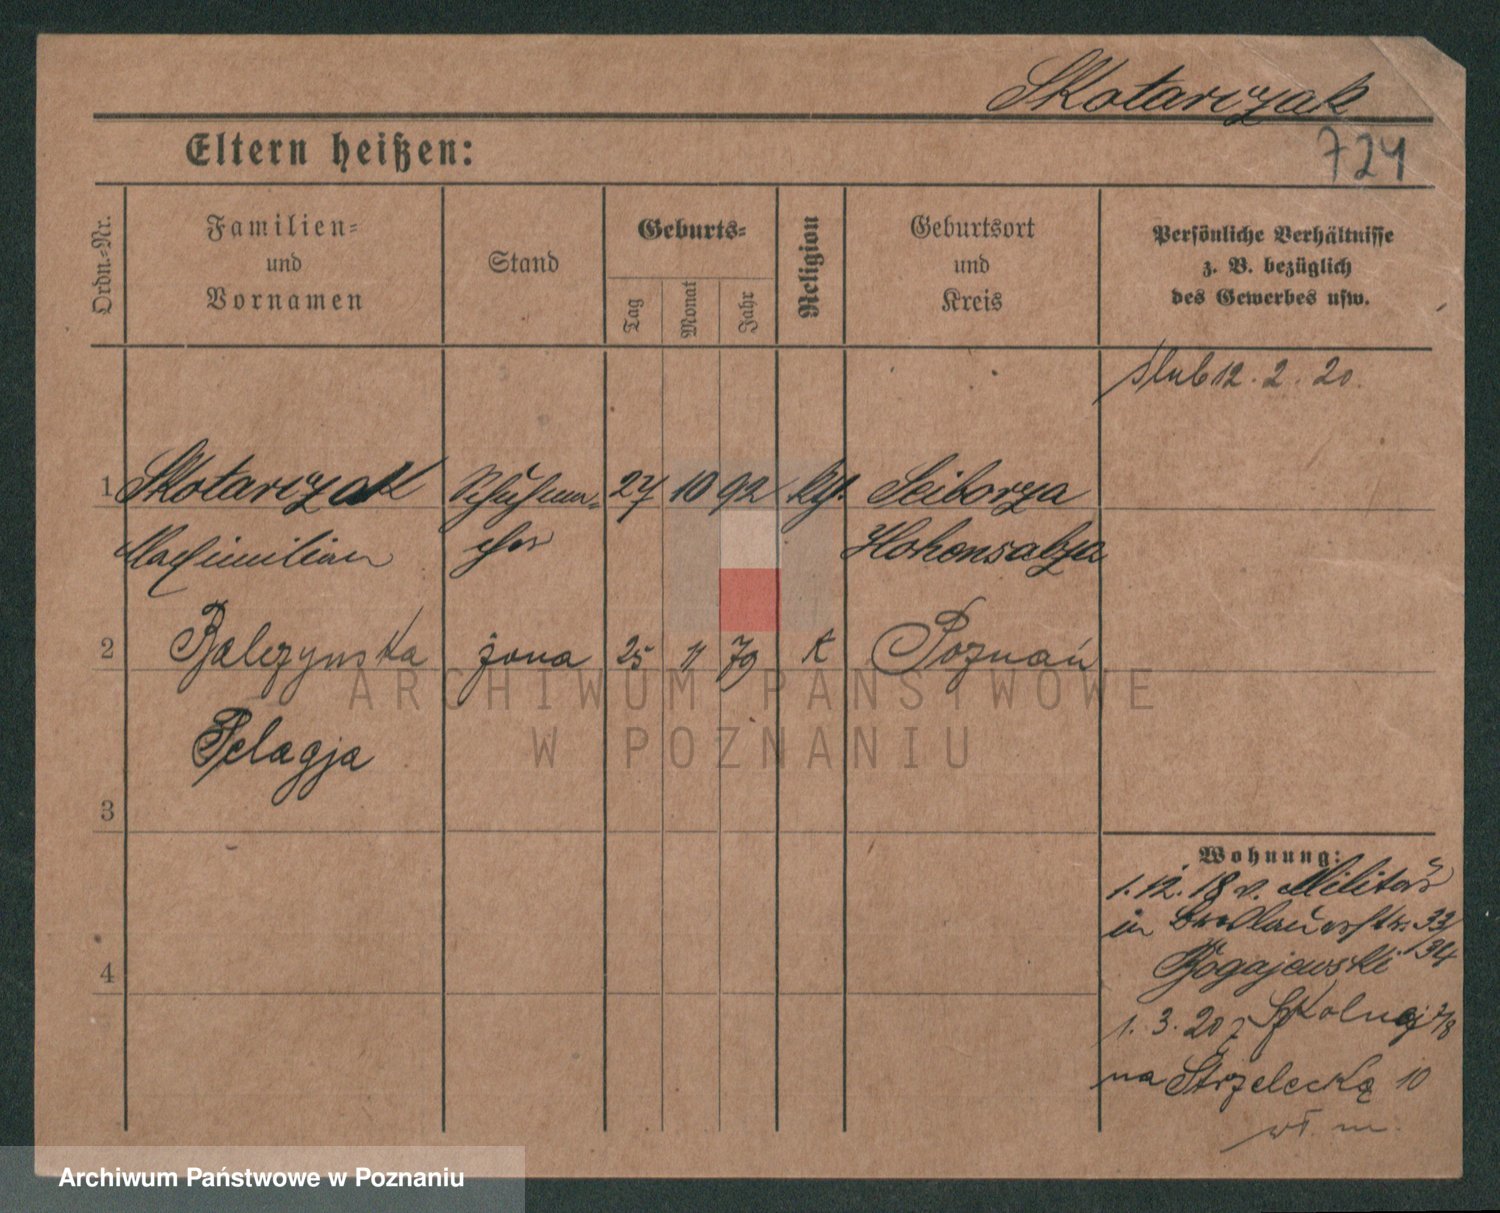 Skotarczak
724
Eltern heißen:
Ordn.-Nr.
Familien-
und
Vornamen
Stand
Geburts-
Tag
Monat
Jahr
Religion
Geburtsort
und
Kreis
Persönliche Verhältnisse
z. B. bezüglich
des Gewerbes usw.
ślub 12. 2. 20.
1 Skotarczak Schuhma- 27 10 92 kth. Sciborza
Maximilian cher Hohensalza
2 Balczynska żona 25 11 79 K Poznań
Pelagja
3
4
Wohnung:
1. 12. 18 v. Militär
in Breslauerstr. 33/34
Rogajewski
1. 3. 20 z Szkolnej 7/8
na Strzelecką 10
wł. m.
ARCHIWUM PAŃSTWOWE
W POZNANIU
Archiwum Państwowe w Poznaniu